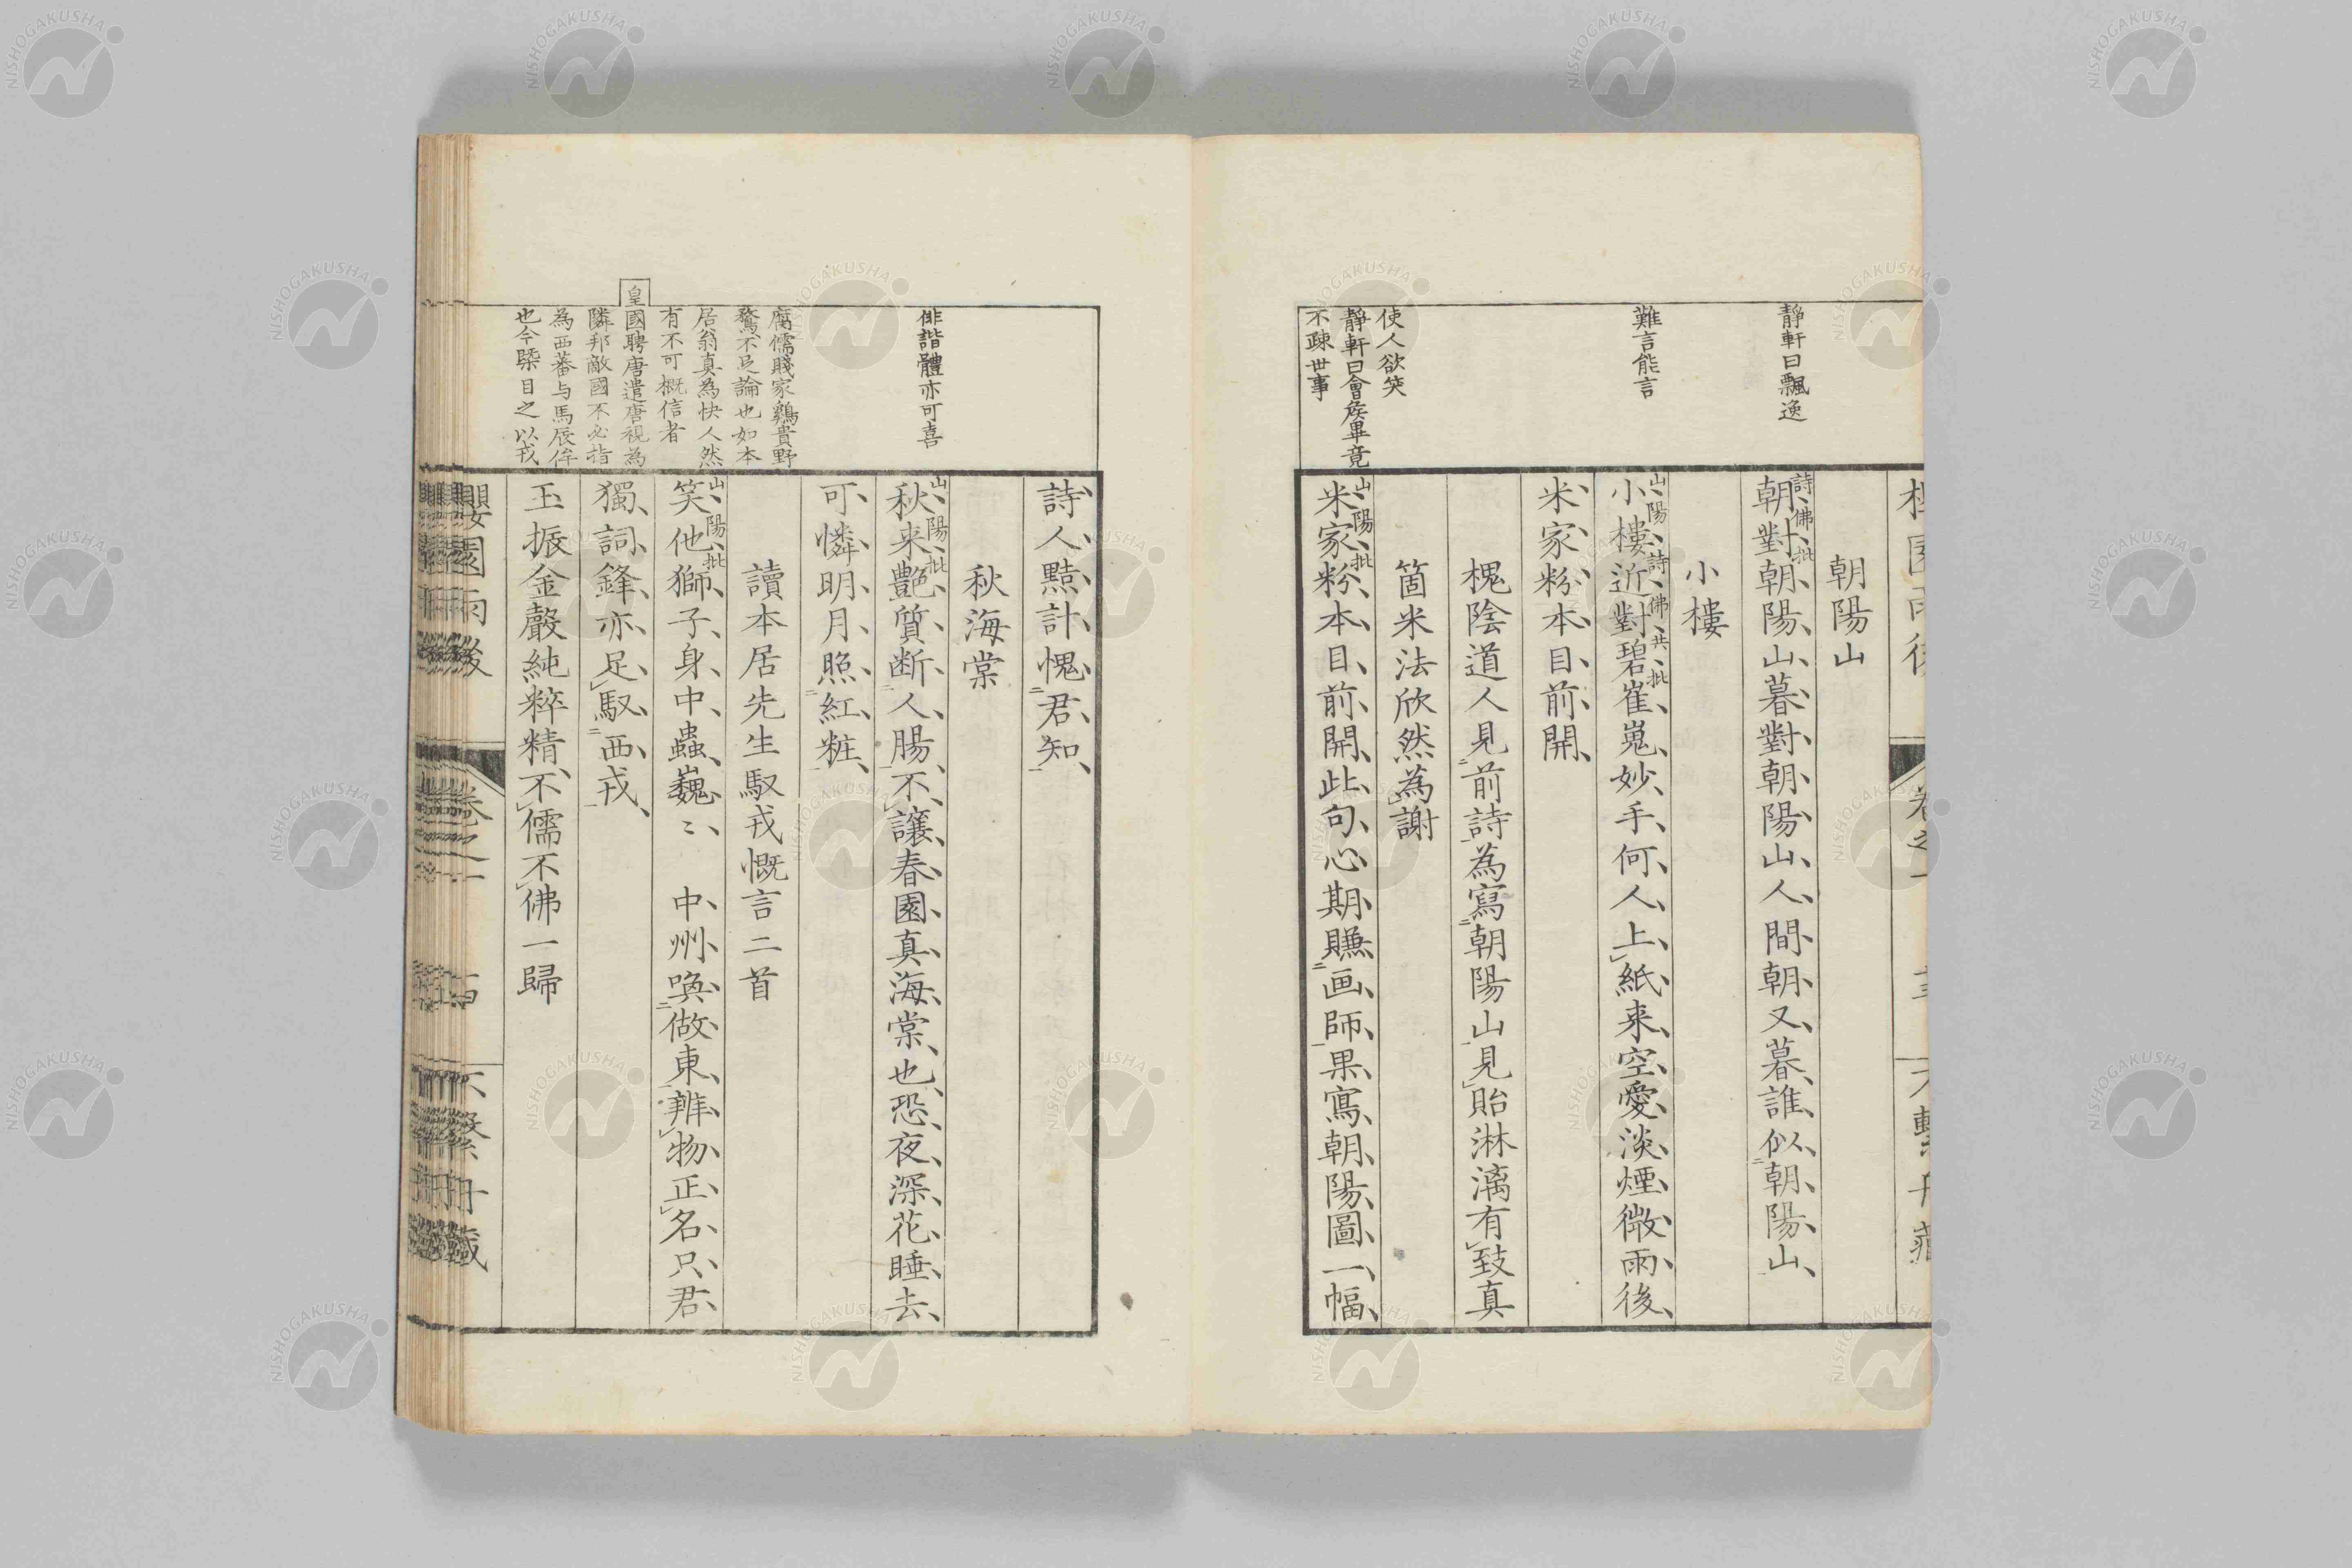 静軒曰飄逸
難言能言
使人欲笑
静軒曰會矦畢竟
不疎世事
朝陽山
詩佛批
朝對朝陽山暮對朝陽山人間朝又暮誰似朝陽山
小樓
山陽詩佛共批
小樓近對碧崔嵬妙手何人上紙来空愛淡煙微雨後
米家粉本目前開
槐陰道人見前詩為寫朝陽山見貽淋漓有致真
箇米法欣然為謝
山陽批
米家粉本目前開此句心期賺画師果寫朝陽圖一幅
俳諧體亦可喜
腐儒賤家鷄貴野
鶩不足論也如本
居翁真為快人然
有不可概信者
皇
國聘唐遣唐視為
隣邦敵國不必指
為西蕃与馬辰侔
也今槩目之以戎
詩人黠計愧君知
秋海棠
山陽批
秋来艶質断人腸不讓春園真海棠也恐夜深花睡去
可憐明月照紅粧
讀本居先生馭戎慨言二首
山陽批
笑他獅子身中蟲巍〻中州喚做東辨物正名只君
獨詞鋒亦足馭西戎
玉振金聲純粹精不儒不佛一歸
櫻園雨後
卷之一
不繫舟藏